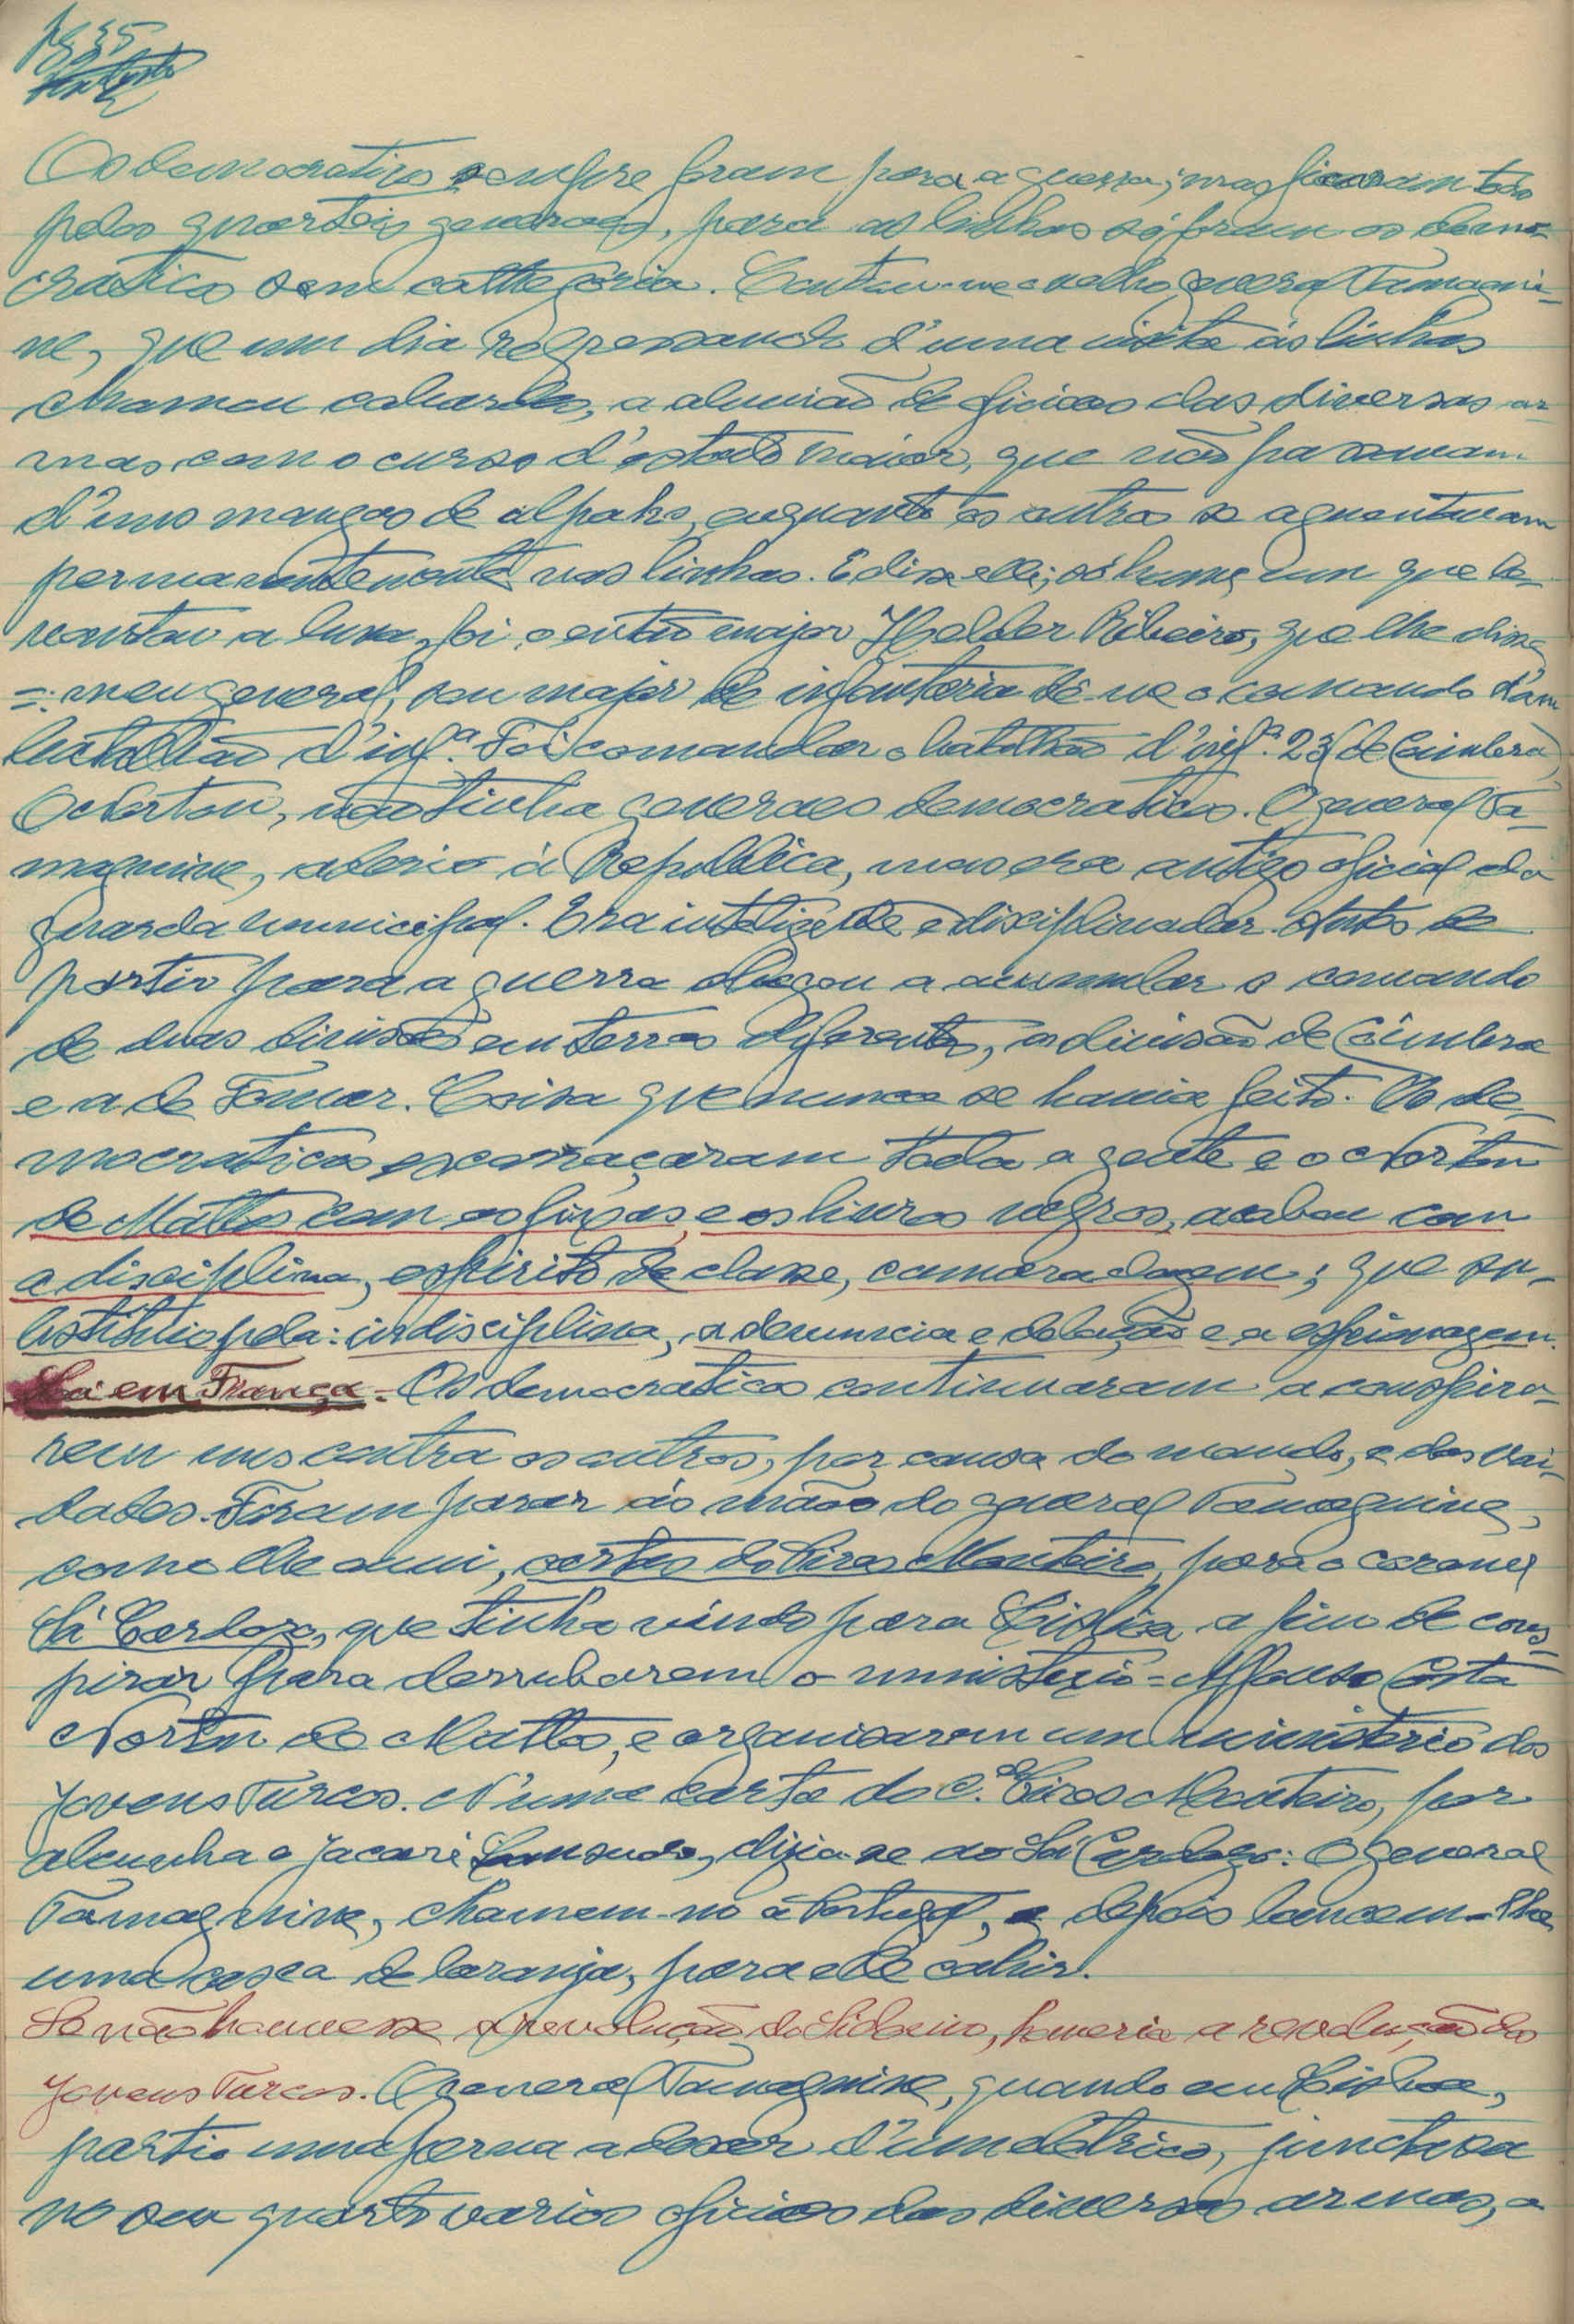 pg. 35
Os democraticos sempre foram para a guerra; mas ficaram todos
pelos quarteis generaes, para as linhas só foram os demo-
craticos sem cathegoria. Contou-me o velho general Tamagni-
ne, que um dia regressando d'uma visita ás linhas
chamou cobardes, a aluvião de oficiaes das diversas ar-
mas com o curso d'estado maior, que não passavam
d'uns mangas de alpaka, enquanto os outros se aguentavam
permanentemente nas linhas. E disse elle; só houve um que le-
vantou a luva, foi o então major Helder Ribeiro, que lhe disse
=: meu general, sou major de infanteria dê-me o comando d'um
batalhão d'inf.ª. Foi comandar o batalhão d'inf.ª 23 (de Coimbra)
O Norton, não tinha generaes democraticos. O general Ta-
magnine, aderio á Republica, mas era antigo oficial da
guarda municipal. Era inteligente e disciplinador. Antes de
partir para a guerra chegou a acumular o comando
de duas divisões em terras diferentes, a divisão de Coimbra
e a de Tomar. Coisa que nunca se havia feito. Os de-
mocraticos escorraçaram toda a gente e o Norton
de Mattos com as fixas, e os livros negros, acabou com
a disciplina, espirito de classe, camaradagem; que su-
bstituio pela: indisciplina, a denuncia e delação e a espionagem.
Lá em França - Os democraticos continuaram a conspira-
rem uns contra os outros, por causa do mando, e das vai-
dades. Foram parar ás mãos do general Tamagnine,
como lhe ouvi, cartas do Pires Monteiro, para o coronel
Sá Cardozo, que tinha vindo para Lisboa a fim de cons-
pirar para derrubarem o ministerio = Affonso Costa
Norton de Mattos, e organisarem um ministerio dos
jovens Turcos. N'uma carta do C.el Pires Monteiro, por
alcunha o jacaré, dizia-se ao Sá Cardozo: O general
Tamagnine, chamem-no a Portugal, e depois lancem-lhe
uma casca de laranja, para elle cahir.
Se não houvesse a revolução do Sidonio, haveria a revolução dos
jovens Turcos. O general Tamagnine, quando em Lisboa,
partio uma perna a descer d'um eletrico, junctava
no seu quarto varios oficiaes das diversas armas, a